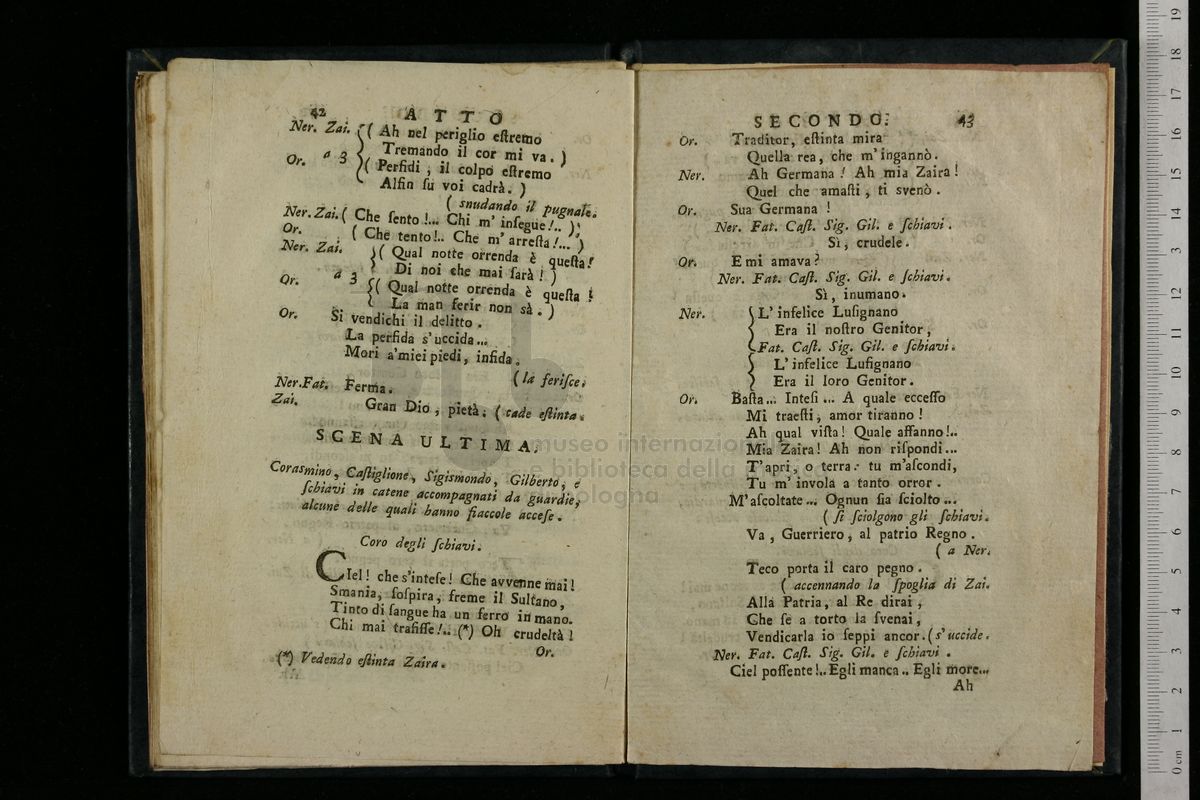 42 ATTO
Ner. Zai. ( Ah nel periglio eſtremo
Tremando il cor mi va. )
Or. a 3 ( Perfidi, il colpo eſtremo
Alfin ſu voi cadrà. )
( snudando il pugnale.
Ner. Zai. ( Che ſento!... Chi m' inſegue!.. );
Or. ( Che tento!.. Che m' arreſta!... )
Ner. Zai. ( Qual notte orrenda è queſta!
Di noi che mai ſarà! )
Or. a 3 ( Qual notte orrenda è queſta!
La man ferir non sà. )
Or. Si vendichi il delitto.
La perfida s'uccida...
Mori a'miei piedi, infida.
( la feriſce.
Ner. Fat. Ferma.
Zai. Gran Dio, pietà. ( cade eſtinta.
SCENA ULTIMA.
Corasmino, Caſtiglione, Sigismondo, Gilberto, e
ſchiavi in catene accompagnati da guardie,
alcune delle quali hanno fiaccole acceſe.
Coro degli ſchiavi.
CIel! che s'inteſe! Che avvenne mai!
Smania, ſoſpira, freme il Sultano,
Tinto di ſangue ha un ferro in mano.
Chi mai trafiſſe!.. (*) Oh crudeltà!
Or.
(*) Vedendo eſtinta Zaira.
SECONDO. 43
Or. Traditor, eſtinta mira
Quella rea, che m' ingannò.
Ner. Ah Germana! Ah mia Zaira!
Quel che amaſti, ti svenò.
Or. Sua Germana!
Ner. Fat. Caſt. Sig. Gil. e ſchiavi.
Sì, crudele.
Or. E mi amava?
Ner. Fat. Caſt. Sig. Gil. e ſchiavi.
Sì, inumano.
Ner. L' infelice Luſignano
Era il noſtro Genitor,
Fat. Caſt. Sig. Gil. e ſchiavi.
L' infelice Luſignano
Era il loro Genitor.
Or. Baſta... Inteſi... A quale ecceſſo
Mi traeſti, amor tiranno!
Ah qual viſta! Quale affanno!..
Mia Zaira! Ah non riſpondi...
T'apri, o terra: tu m'aſcondi,
Tu m' invola a tanto orror.
M'aſcoltate... Ognun ſia ſciolto...
( ſi ſciolgono gli ſchiavi.
Va, Guerriero, al patrio Regno.
( a Ner.
Teco porta il caro pegno.
( accennando la ſpoglia di Zai.
Alla Patria, al Re dirai,
Che ſe a torto la ſvenai,
Vendicarla io ſeppi ancor. ( s' uccide.
Ner. Fat. Caſt. Sig. Gil. e ſchiavi.
Ciel poſſente!.. Egli manca.. Egli more...
Ah
museo internazionale
e biblioteca della musica
bologna